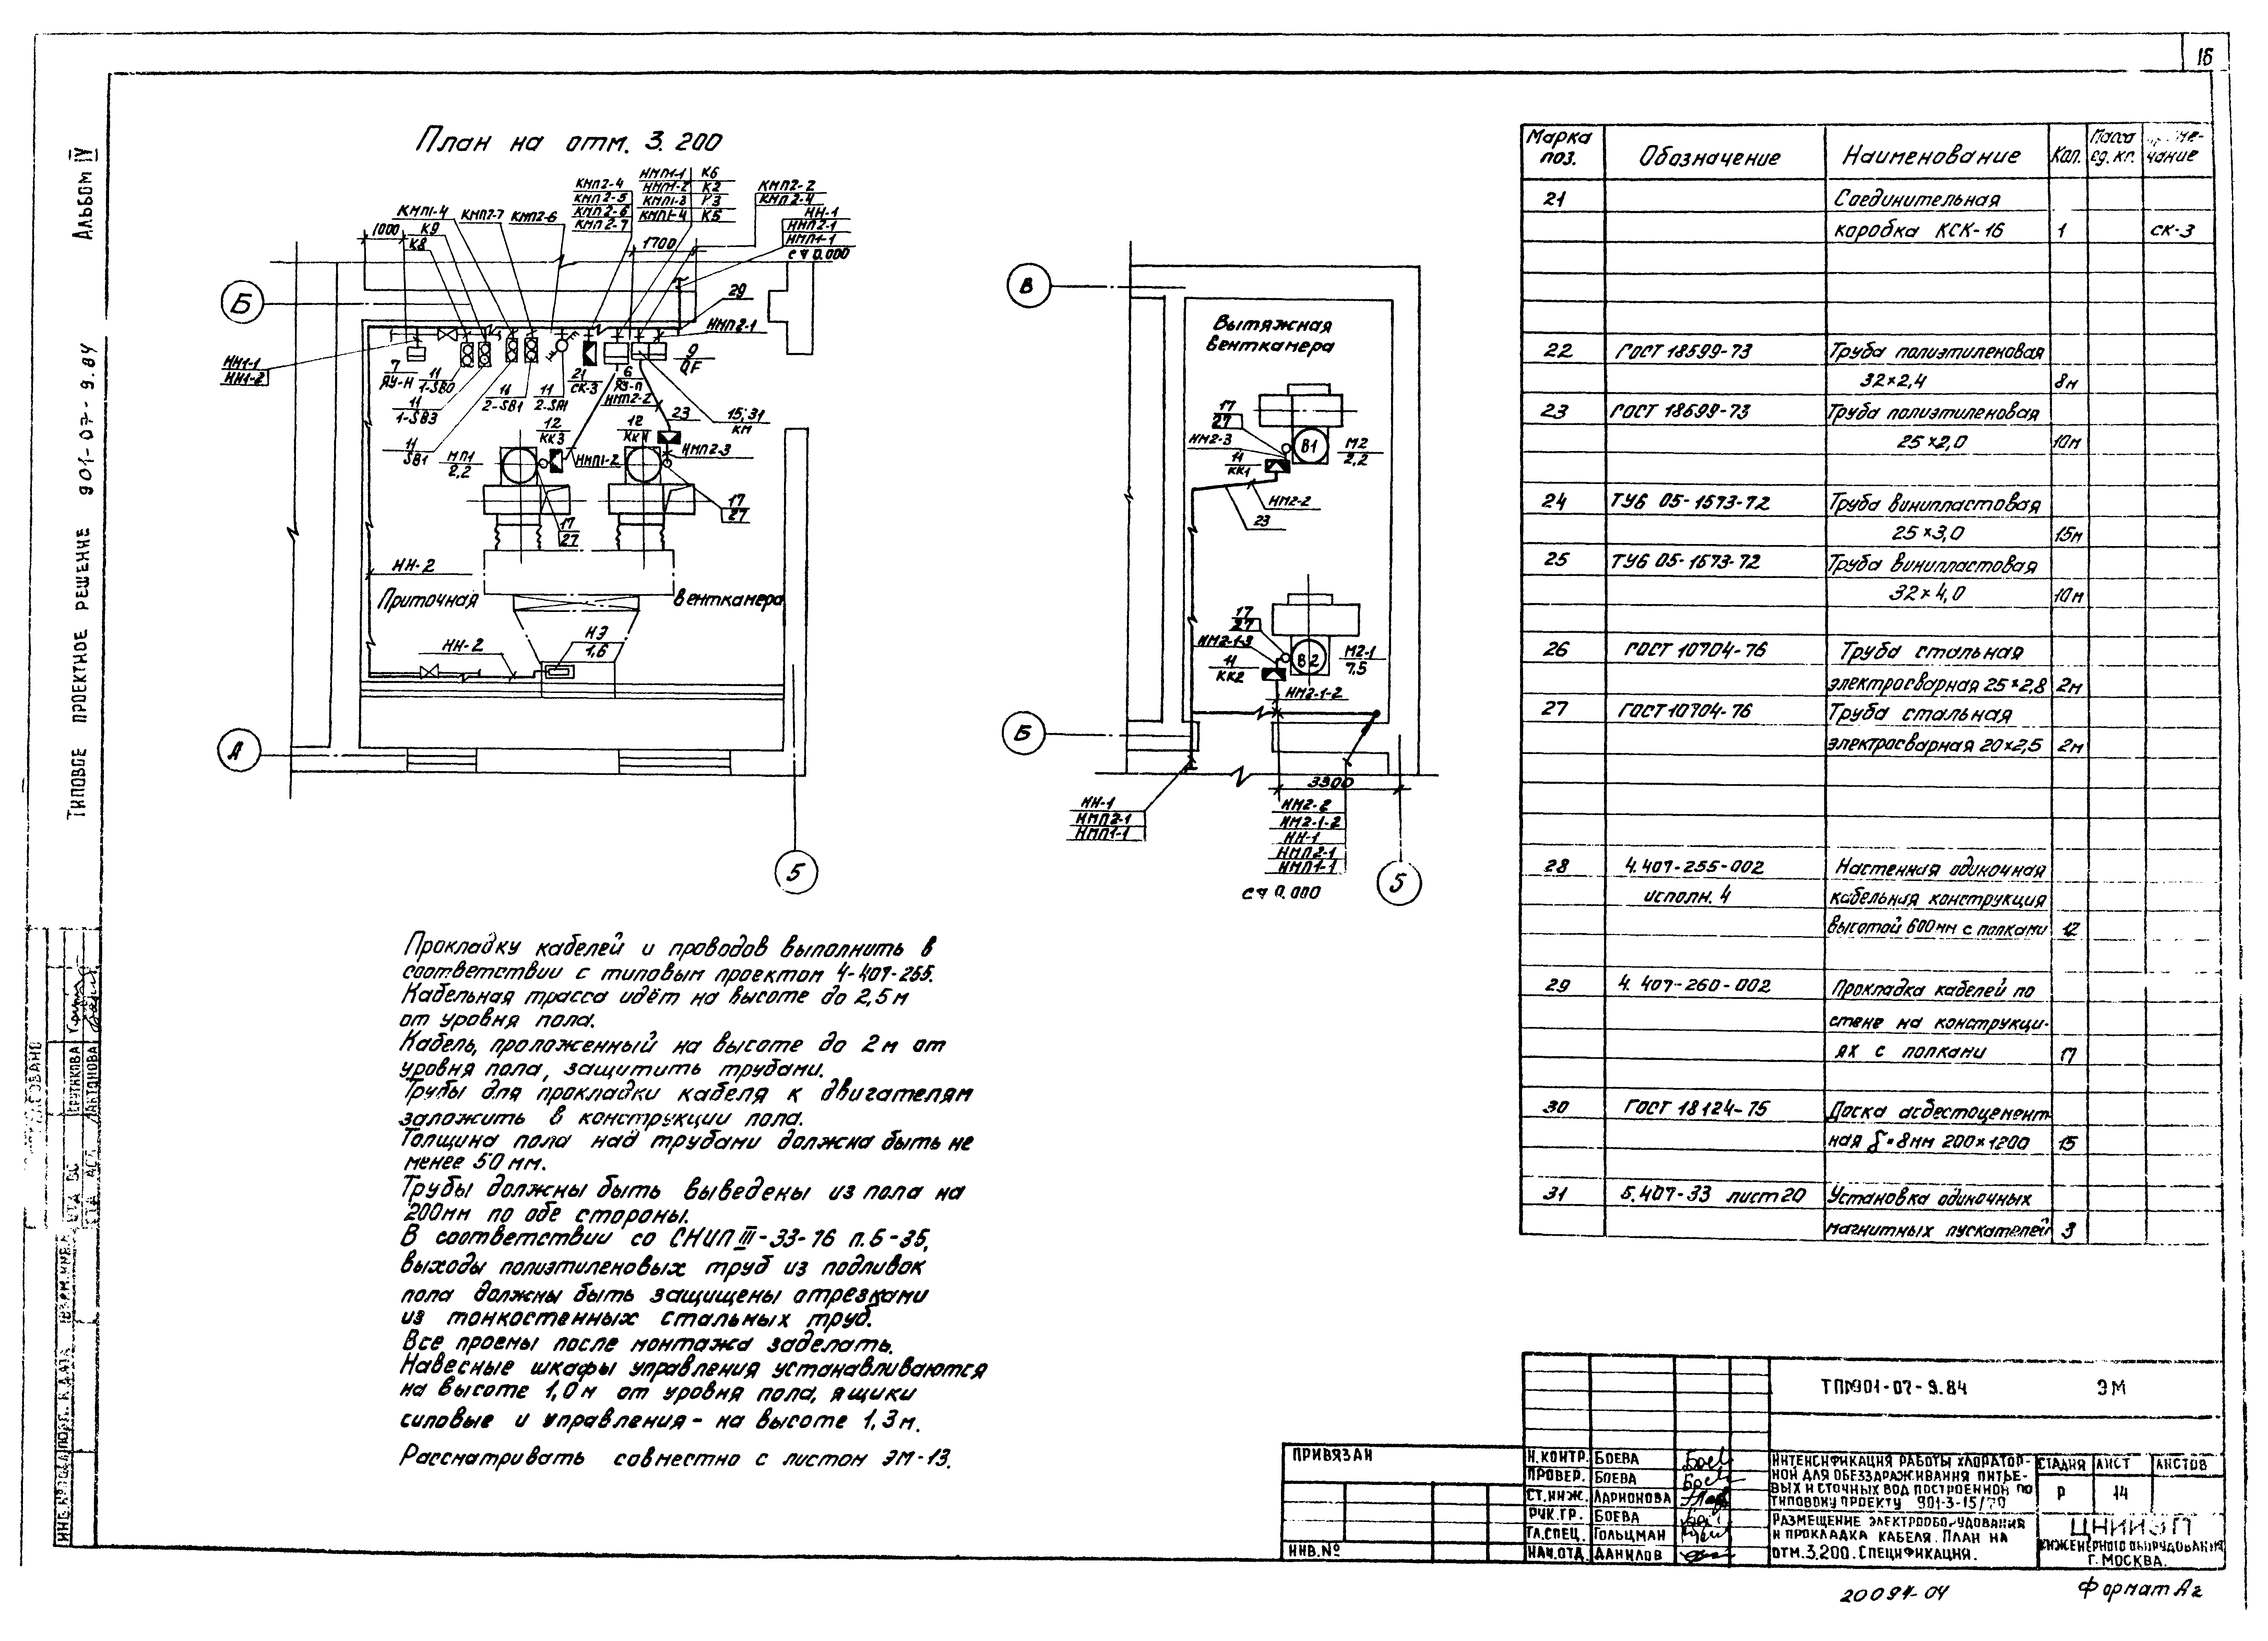 16
Альбом IV
Типовое проектное решение 901-07-9.84
План на отм. 3.200
КМП2-4
КМП2-5
КМП2-6
КМП2-7
НМП1-1 К6
НМП1-2 К2
КМП1-3
КМП1-4 К5
КМП2-2
КМП2-4
НН-1
НМП2-1
НМП1-1
с ▽ 0.000
КМП1-4
КМП2-7
КМП2-6
1000
К9
К8
1700
Б
29
НМП2-1
НН1-1
НН1-2
7
ЯУ-Н
11
1-SB3
11
2-SB1
21
СК-3
6
ЯУ-П
9
QF
НМП2-2
23
15; 31
КМ
11
SB1
12
КК3
12
МП1
2,2
НМП1-2
НМП2-3
17
27
17
27
НН-2
Приточная венткамера
НЭ
1,6
НН-2
А
5
В
Вытяжная
венткамера
17
27
НМ2-3
В1
М2
2,2
КК1
НМ2-2
23
17
27
НМ2-1-3
В2
М2-1
7,5
КК2
НМ2-1-2
Б
3300
НН-1
НМП2-1
НМП1-1
НМ2-2
НМ2-1-2
НН-1
НМП2-1
НМП1-1
с ▽ 0.000
5
Прокладку кабелей и проводов выполнить в
соответствии с типовым проектом 4-407-255.
Кабельная трасса идёт на высоте до 2,5 м
от уровня пола.
Кабель, проложенный на высоте до 2 м от
уровня пола, защитить трубами.
Трубы для прокладки кабеля к двигателям
заложить в конструкции пола.
Толщина пола над трубами должна быть не
менее 50 мм.
Трубы должны быть выведены из пола на
200мм по обе стороны.
В соответствии со СНИП III-33-76 п.6-35,
выходы полиэтиленовых труб из подливок
пола должны быть защищены отрезками
из тонкостенных стальных труб.
Все проемы после монтажа заделать.
Навесные шкафы управления устанавливаются
на высоте 1,0 м от уровня пола, ящики
силовые и управления - на высоте 1,3 м.
Рассматривать совместно с листом ЭМ-13.
Марка поз. Обозначение Наименование Кол. Масса ед. кг.
21 Соединительная
коробка КСК-16 1 СК-3
22 ГОСТ 18599-73 Труба полиэтиленовая
32×2,4 8м
23 ГОСТ 18599-73 Труба полиэтиленовая
25×2,0 10м
24 ТУ6 05-1573-72 Труба винипластовая
25×3,0 15м
25 ТУ6 05-1573-72 Труба винипластовая
32×4,0 10м
26 ГОСТ 10704-76 Труба стальная
электросварная 25×2,8 2м
27 ГОСТ 10704-76 Труба стальная
электросварная 20×2,5 2м
28 4.407-255-002 Настенная одиночная
исполн. 4 кабельная конструкция
высотой 600мм с полками 12
29 4.407-260-002 Прокладка кабелей по
стене на конструкци-
ях с полками 17
30 ГОСТ 18124-75 Доска асбестоцемент-
ная δ=8мм 200×1200 15
31 5.407-33 лист 20 Установка одиночных
магнитных пускателей 3
ТПМ901-07-9.84 ЭМ
ПРИВЯЗАН
ИНВ.№
Н.КОНТР. БОЕВА
ПРОВЕР. БОЕВА
СТ.ИНЖ. ЛАРИОНОВА
РУК.ГР. БОЕВА
ГЛ.СПЕЦ. ГОЛЬЦМАН
НАЧ.ОТД. ДАНИЛОВ
ИНТЕНСИФИКАЦИЯ РАБОТЫ ХЛОРАТОР-
НОЙ ДЛЯ ОБЕЗЗАРАЖИВАНИЯ ПИТЬЕ-
ВЫХ И СТОЧНЫХ ВОД ПОСТРОЕННОЙ ПО
ТИПОВОМУ ПРОЕКТУ 901-3-15/70
РАЗМЕЩЕНИЕ ЭЛЕКТРООБОРУДОВАНИЯ
И ПРОКЛАДКА КАБЕЛЯ. ПЛАН НА
ОТМ.3.200. СПЕЦИФИКАЦИЯ.
СТАДИЯ ЛИСТ ЛИСТОВ
Р 14
ЦНИИЭП
ИНЖЕНЕРНОГО ОБОРУДОВАНИЯ
Г. МОСКВА.
20094-04
Формат А2